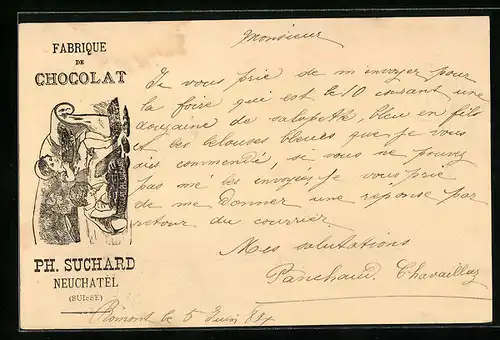 FABRIQUE
DE
CHOCOLAT
PH. SUCHARD
NEUCHATEL
(SUISSE)
Monsieur
Je vous prie de m'envoyer pour
la foire qui est le 10 courant une
douzaine de salopete, bleu en fils
et les belouses bleues que je vous
ais commendé, si vous ne pouvez
pas me les envoyés je vous prie
de me donner une réponse par
retour du courrier.
Mes salutations
Panchaud. Chavaillaz
Romont le 5 Juin 82